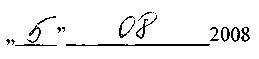 „ 5 ” 08 2008